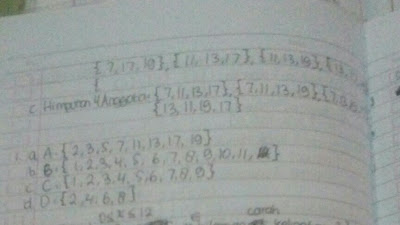 {7,17,19}, {11,13,17}, {11,13,19}, {13,
{
c Himpunan 4 Anggota = {7,11,13,17}, {7,11,13,19}, {7,13,
{13,11,19,17}
1. a A = {2,3,5,7,11,13,17,19}
b B = {1,2,3,4,5,6,7,8,9,10,11, }
c C = {1,2,3,4,5,6,7,8,9}
d D = {2,4,6,8}